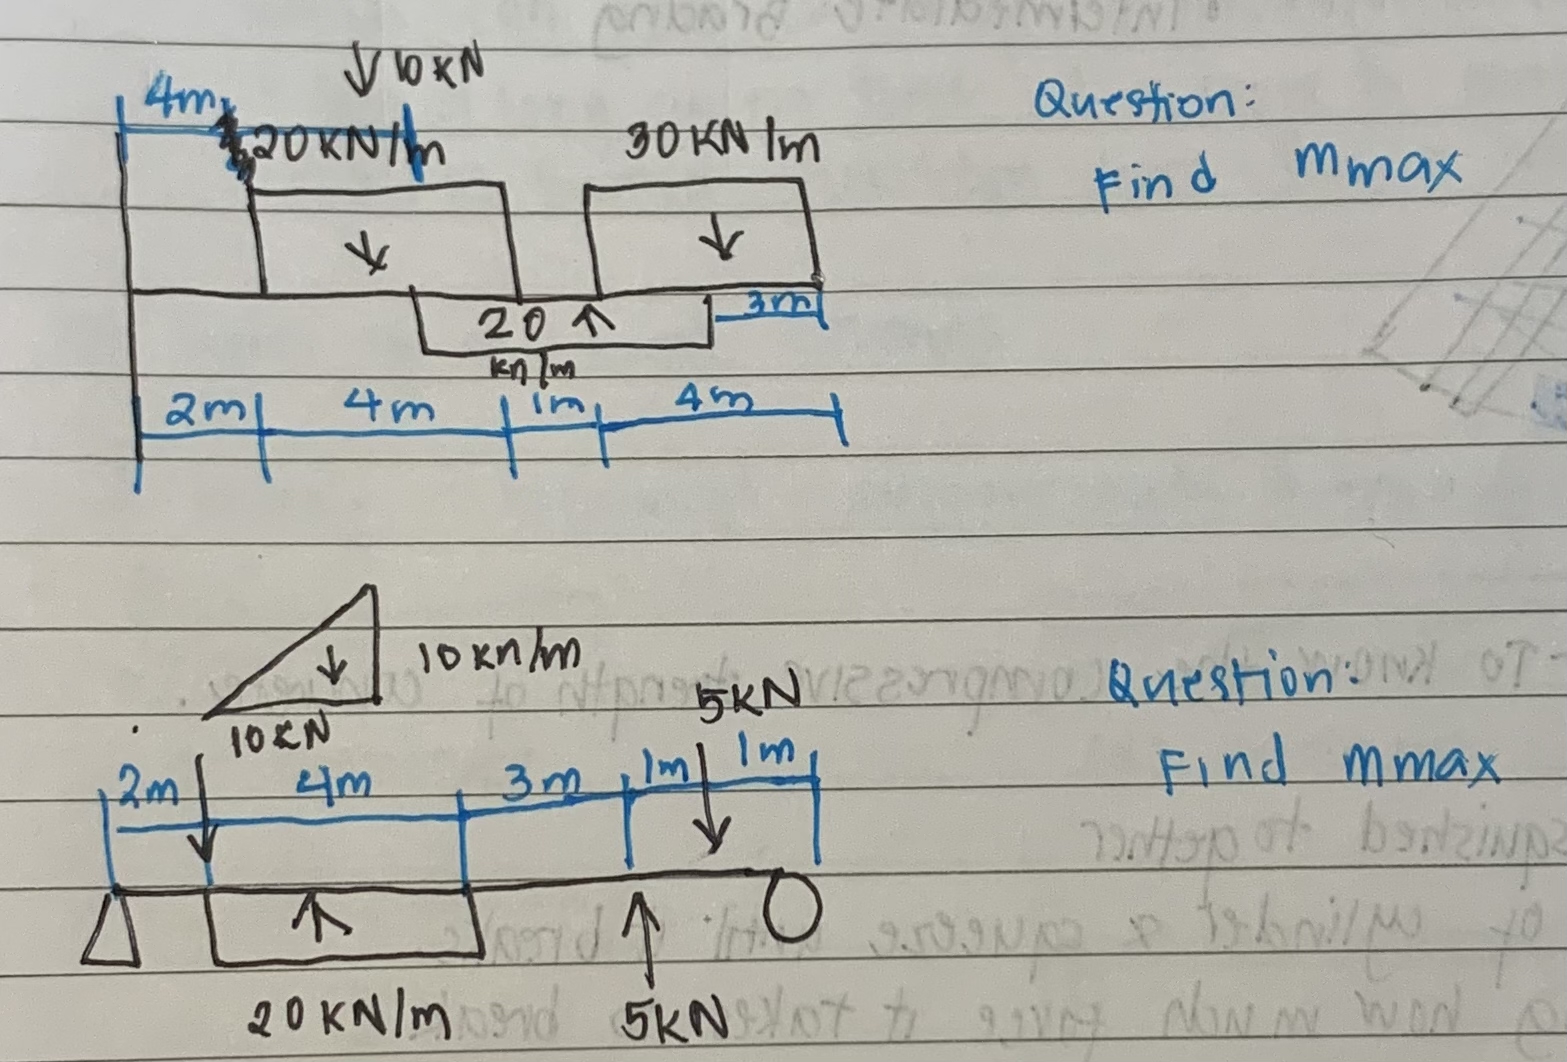 ↓ 10 KN
4m
20 KN/m
30 KN/m
Question:
Find Mmax
3m
20 ↑
kn/m
2m
4m
1m
4m
10 kn/m
Question:
Find mmax
10 KN
5KN
2m
4m
3m
1m
1m
20 KN/m
5KN